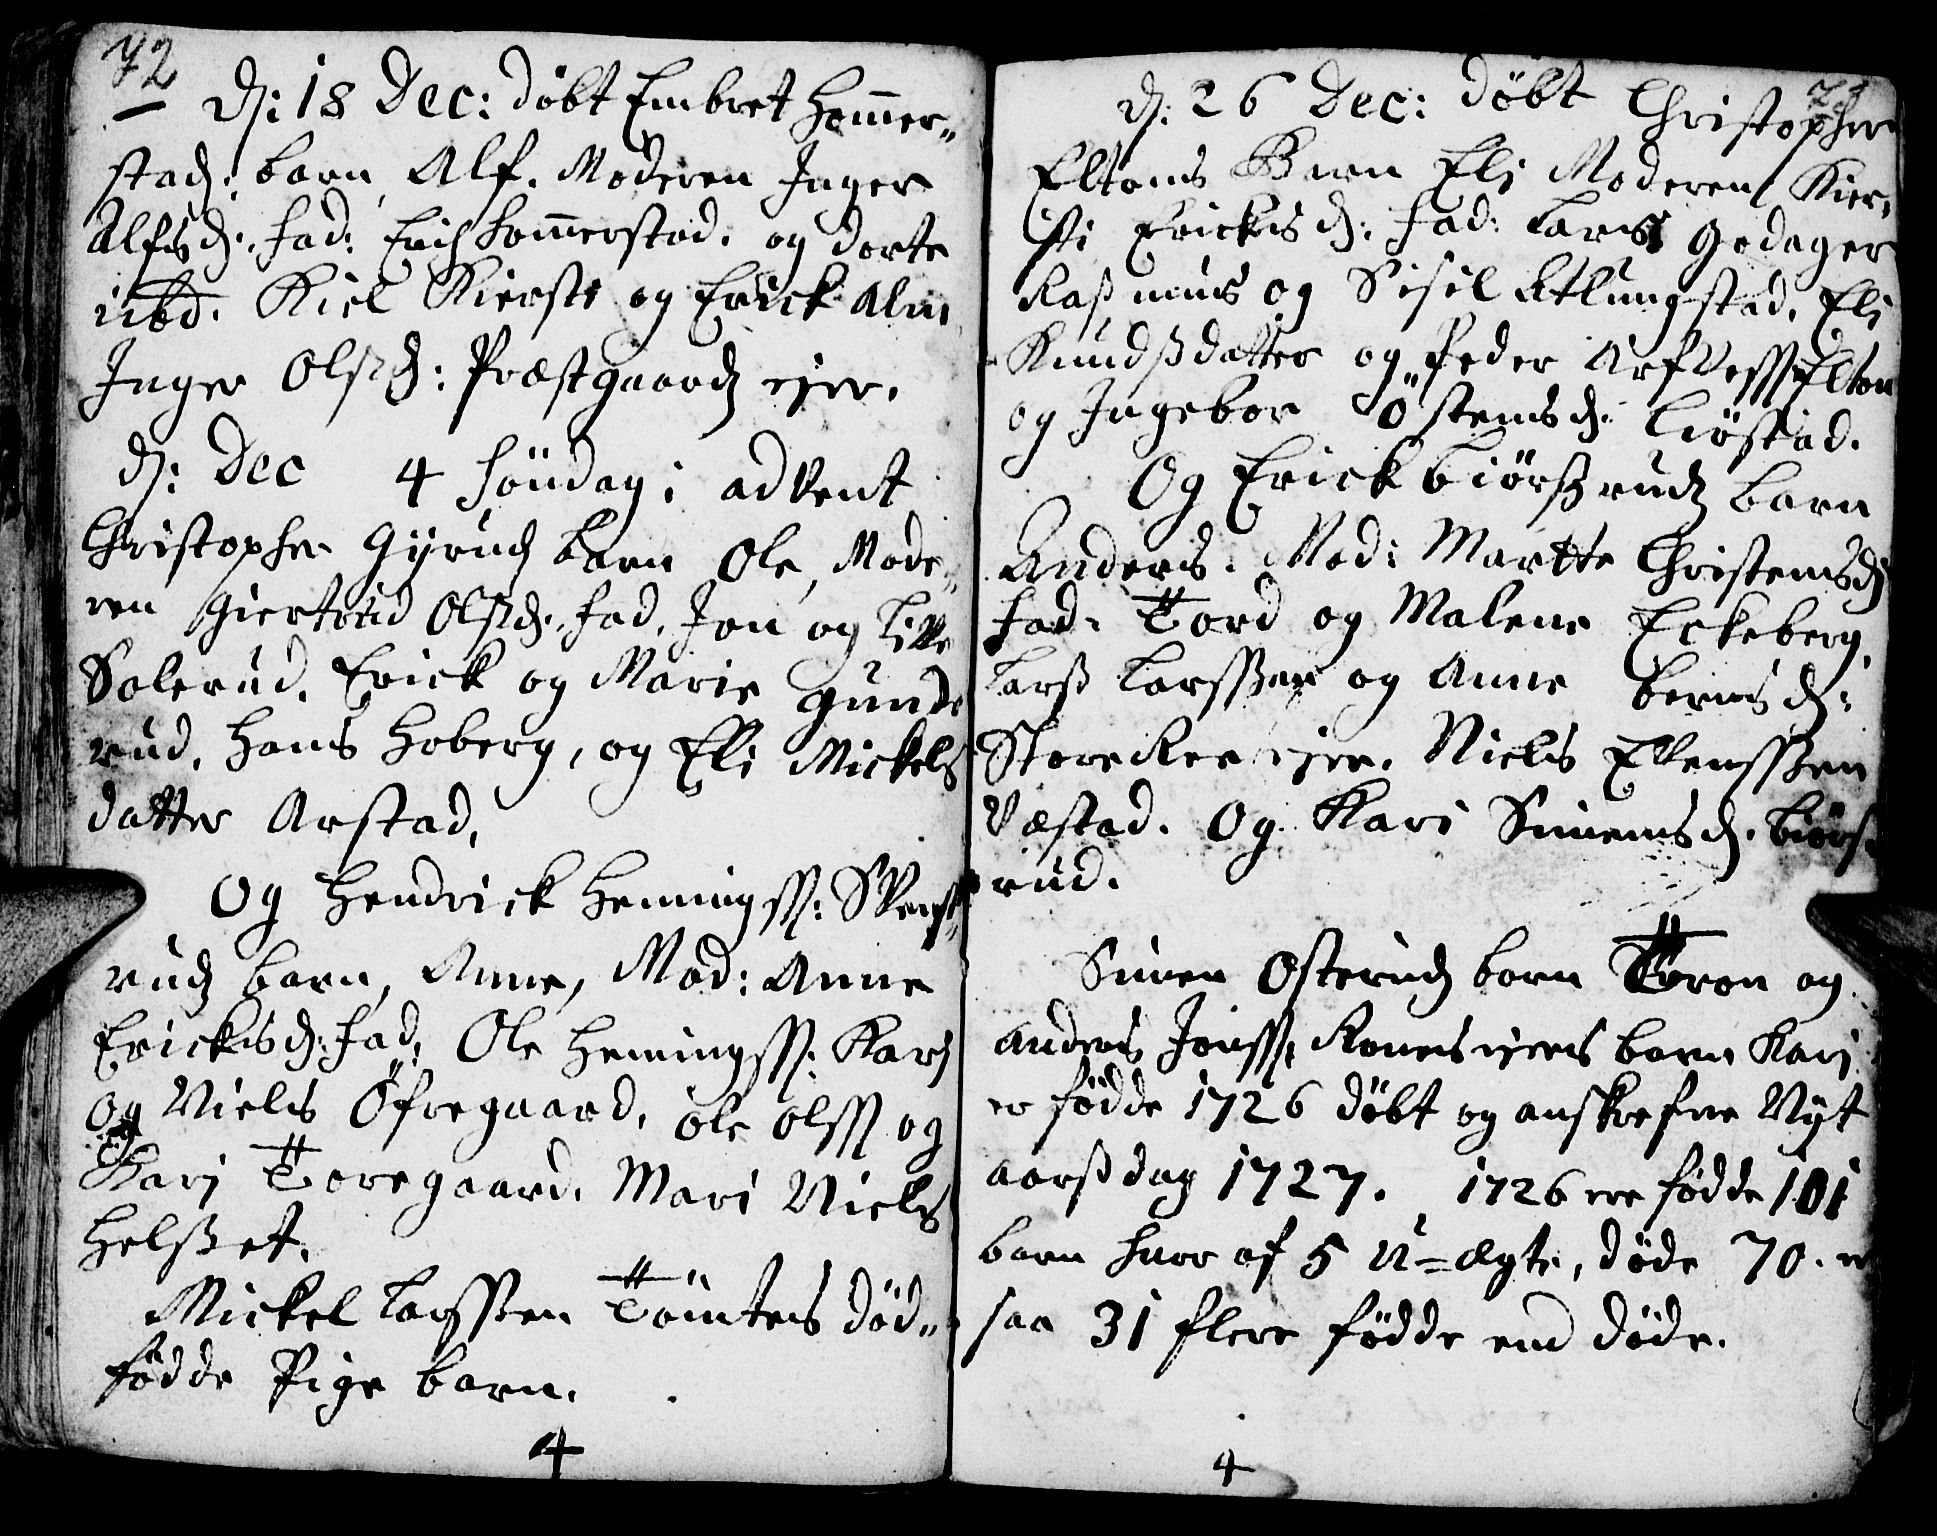 72
D: 18 Dec: döbt Embret Hom̅er„
stad: barn Alf. Moderen Inger
Alfsd: fad: Erich Hom̅erstad. og dorte
ibd. Kiel Kiersti og Erick Alm
Inger Olsd: Præstgaard ejer.
D: Dec 4 Söndag i advent
Christopher Gÿrud barn Ole, Mode„
ren Giertrud Olsd. fad. Jon og Lille
Solerud. Erick og Marie Gunde
rud, Hans Hoberg, og Eli Mickels
datter Arstad.
Og Hendrick Henningss: Skens„
rud barn, Anne, Mod: Anne
Ericksd: fad: Ole Henningss: Karj
og Niels Öfregaard. Ole Olss og
Kari Toregaard. Mari Niels
Helsset.
Mickel Larssen Tömtens död„
födde Pige barn.
4
D: 26 Dec: döbt Christopher
Eltons Barn Eli Moderen Kier„
sti Ericksd: fad: Lars Godager
Rasmus og Sisil Atlungstad. Eli
Knudsdatter og Peder Arfvess Elton
og Ingebor Östensd: Liöstad.
Og Erick biörsrud barn
Anders. Mod: Martte Christensd
fad: Tord og Malene Eckeberg.
Lars Larssen og Anne berensd:
Storecker ejer. Niels Ellenssen
Væstad. Og Kari Simensd. biörs„
rud.
Simen Osterud barn Toron og
anders Jonss: Rones ejers barn Kari
er födde 1726 döbt og anskrefne Nÿt
aarsdag 1727. 1726 ere födde 101
barn hvor af 5 U=ægte, döde 70. er
saa 31 flere födde end döde.
4